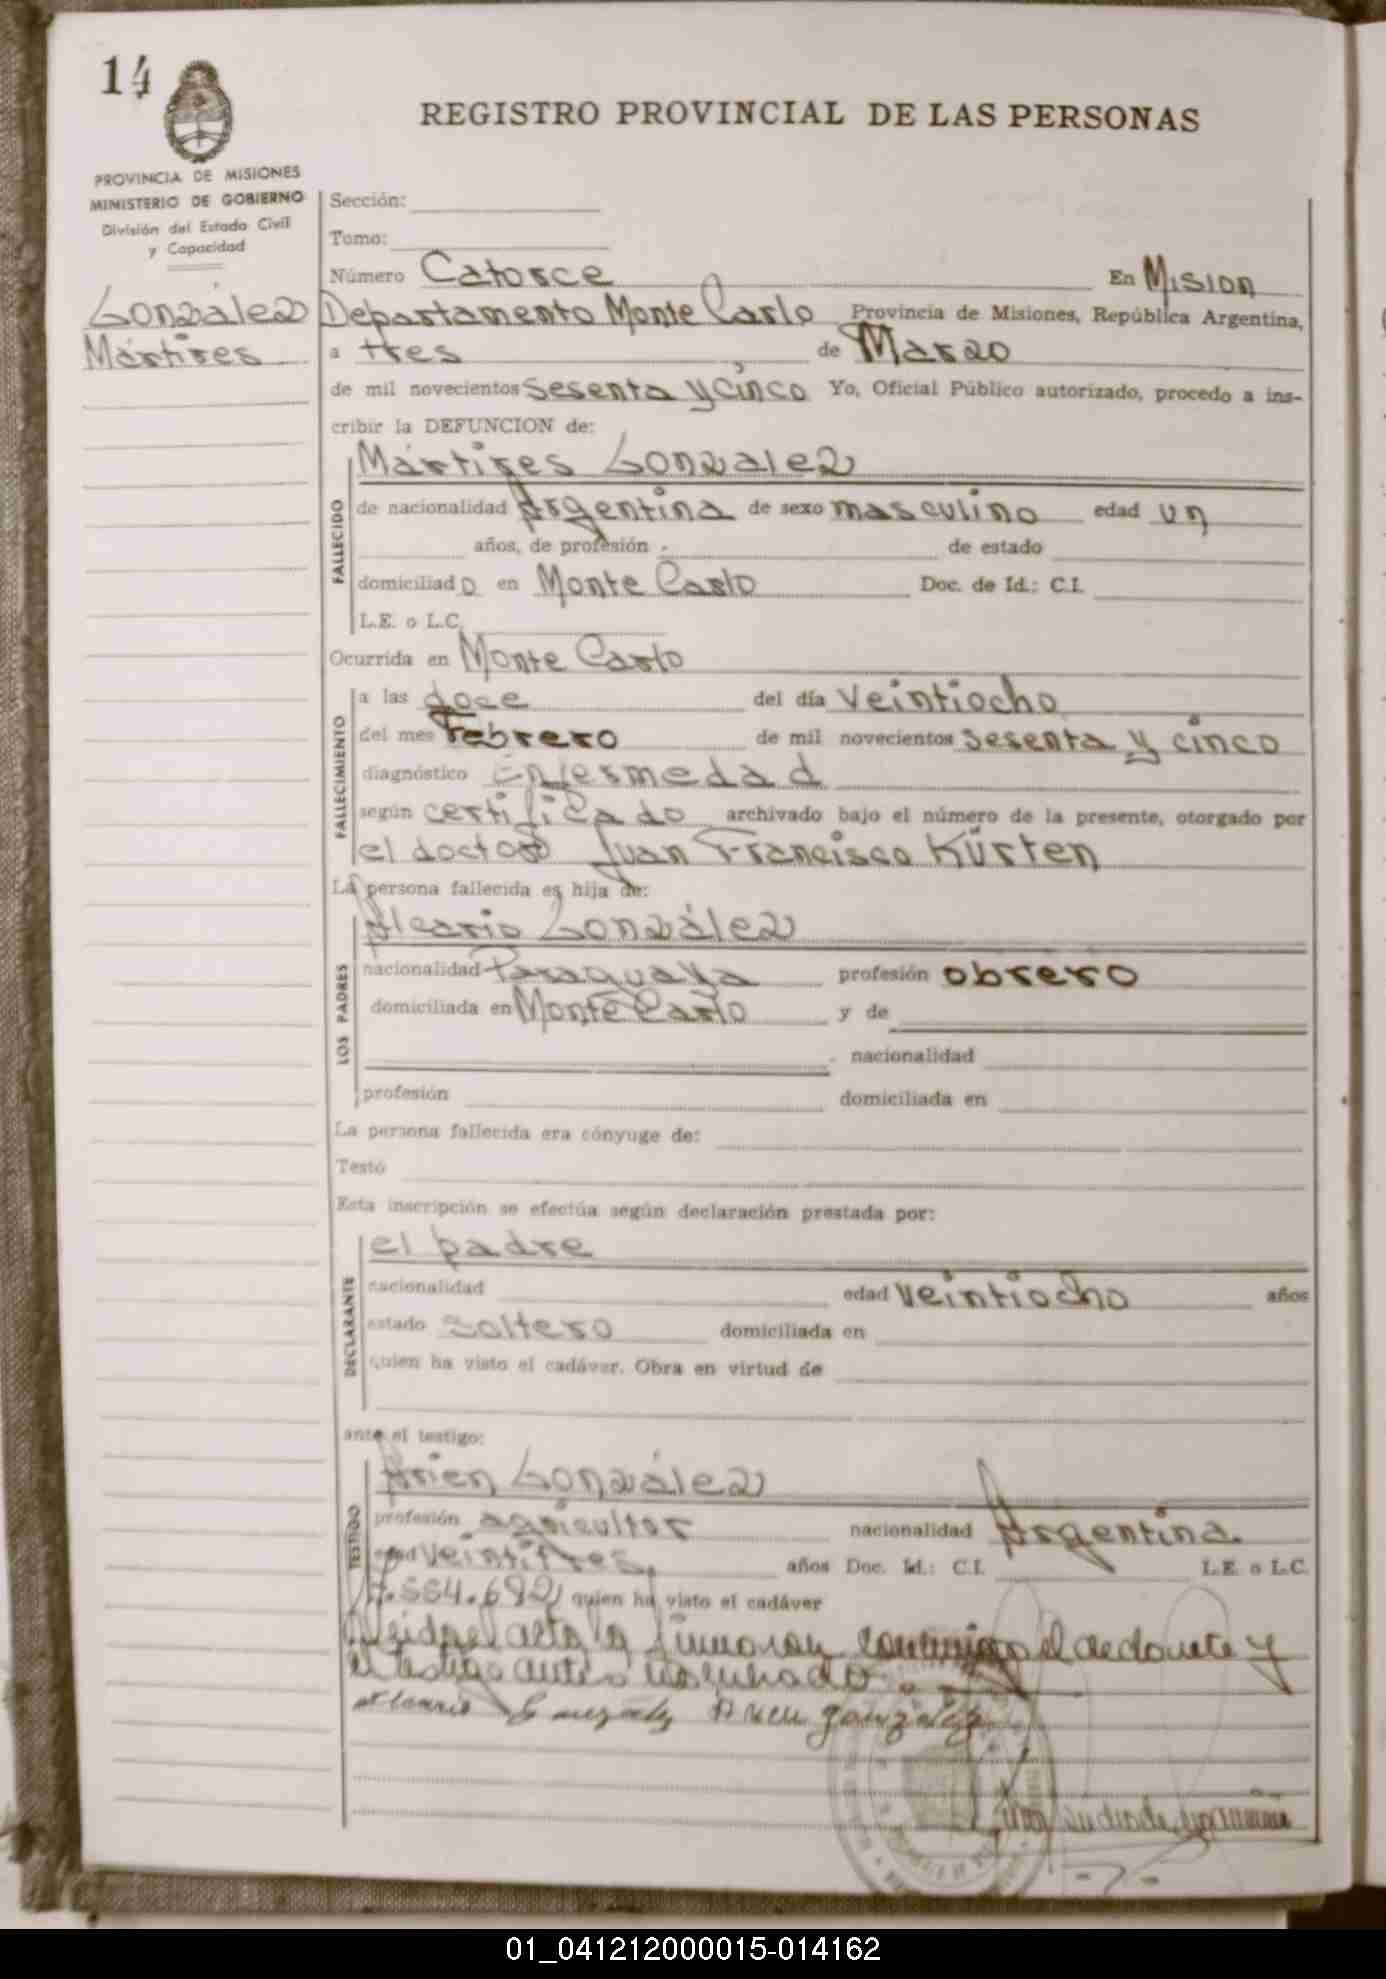 14
REGISTRO PROVINCIAL DE LAS PERSONAS
PROVINCIA DE MISIONES
MINISTERIO DE GOBIERNO
División del Estado Civil
y Capacidad
González
Mártires
Sección:
Tomo:
Número Catorce En Mision
Departamento Monte Carlo Provincia de Misiones, República Argentina,
a tres de Marzo
de mil novecientos Sesenta y cinco Yo, Oficial Público autorizado, procedo a ins-
cribir la DEFUNCION de:
FALLECIDO
Mártires Gonzalez
de nacionalidad Argentina de sexo masculino edad un
años, de profesión - de estado
domiciliado en Monte Carlo Doc. de Id.: C.I.
L.E. o L.C.
Ocurrida en Monte Carlo
FALLECIMIENTO
a las doce del día veintiocho
del mes Febrero de mil novecientos sesenta y cinco
diagnóstico Enfermedad
según certificado archivado bajo el número de la presente, otorgado por
el doctor Juan Francisco Kürten
La persona fallecida es hija de:
LOS PADRES
Alcario González
nacionalidad Paraguaya profesión obrero
domiciliada en Monte Carlo y de
nacionalidad
profesión domiciliada en
La persona fallecida era cónyuge de:
Testó
Esta inscripción se efectúa según declaración prestada por:
DECLARANTE
el padre
nacionalidad edad veintiocho años
estado soltero domiciliada en
quien ha visto el cadáver. Obra en virtud de
ante el testigo:
TESTIGO
Arien González
profesión agricultor nacionalidad Argentina
edad veintitres, años Doc. Id.: C.I. L.E. o L.C.
7.554.692, quien ha visto el cadáver
Leida el acta la firmaron conmigo el declarante y
el testigo antes nombrado.
Alcario Gonzalez Arien González
01_041212000015-014162